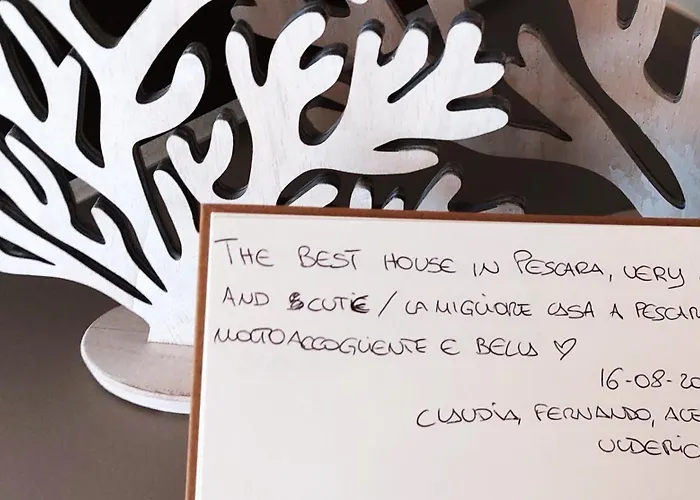 THE BEST HOUSE IN PESCARA, VERY
AND CUTE / LA MIGLIORE CASA A PESCAR
MOLTO ACCOGLIENTE E BELLA ♡
16-08-20
CLAUDIA, FERNANDO, ALE
ULDERIC